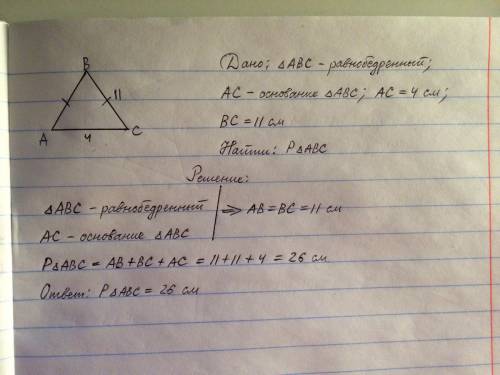 B
11
A
4
C
Дано: △ABC - равнобедренный;
AC - основание △ABC; AC = 4 см;
BC = 11 см
Найти: P△ABC
Решение:
△ABC - равнобедренный
AC - основание △ABC
⇒ AB = BC = 11 см
P△ABC = AB + BC + AC = 11 + 11 + 4 = 26 см
Ответ: P△ABC = 26 см